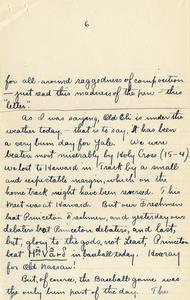 6
for all around raggedness of composition
— just read this madness of the pen — this
"letter."
As I was saying, Old Eli is under the
weather today — that is to say, it has been
a very bum day for Yale. We were
beaten most miserably by Holy Cross (15-4)
we lost to Harvard in Track by a small
and respectable margin, which on the
home track might have been reversed. This
Meet was at Harvard. But our Freshmen
beat Princeton Freshmen, and yesterday our
debaters beat Princeton debaters, and last,
but, glory to the gods, not least, Princeton
beat Harvard in baseball today. Hooray
for Old Nassau!
But, of course, the Baseball game was
the only bum part of the day. The